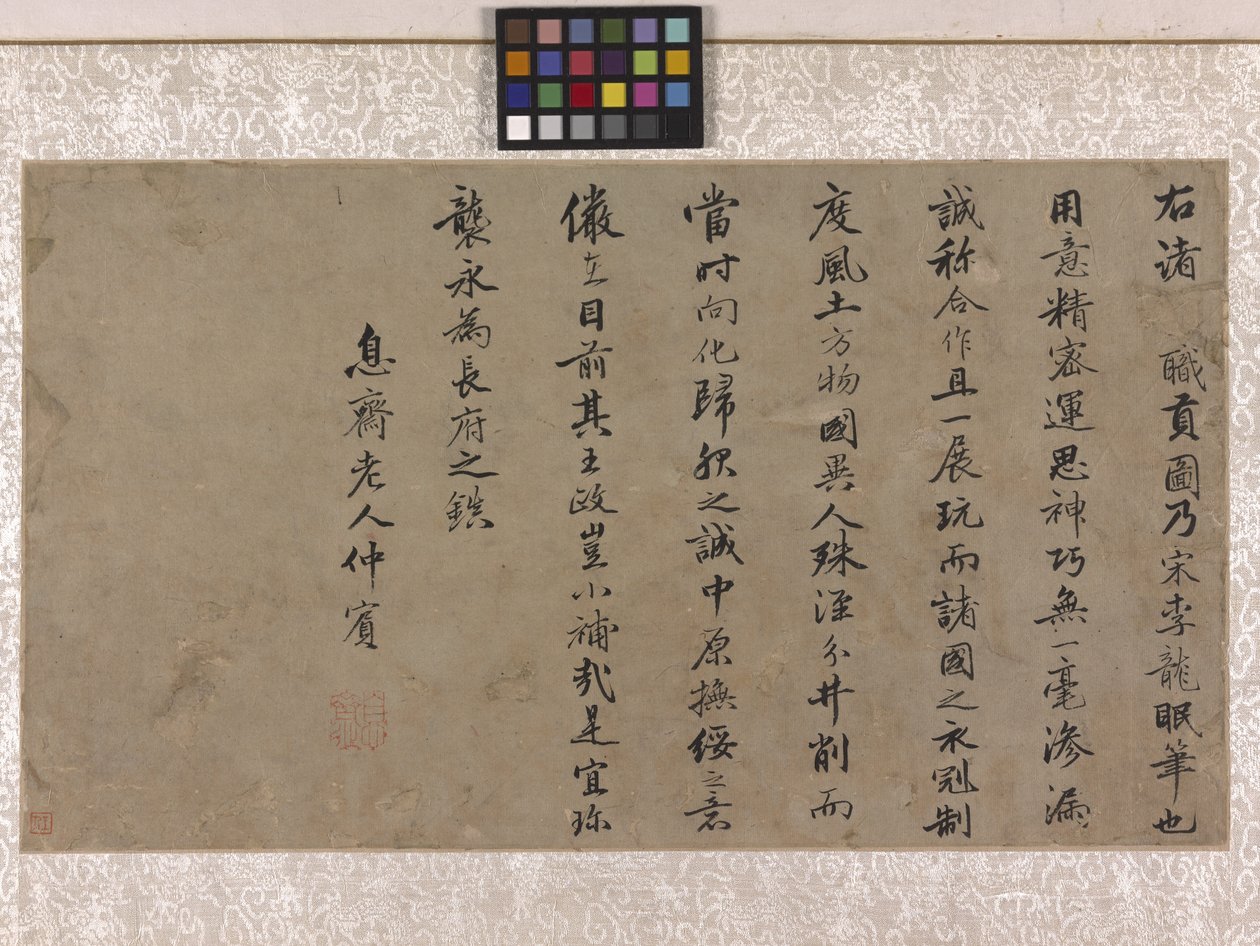 右诸 職貢圖乃宋李龍眠筆也
用意精密運思神巧無一毫滲漏
誠称合作且一展玩而諸國之衣冠制
度風土方物國異人殊涇分井削而
當时向化歸服之誠中原撫綏之意
儼在目前其王政豈小補哉是宜珎
襲永為長府之鎮
息齋老人仲賓